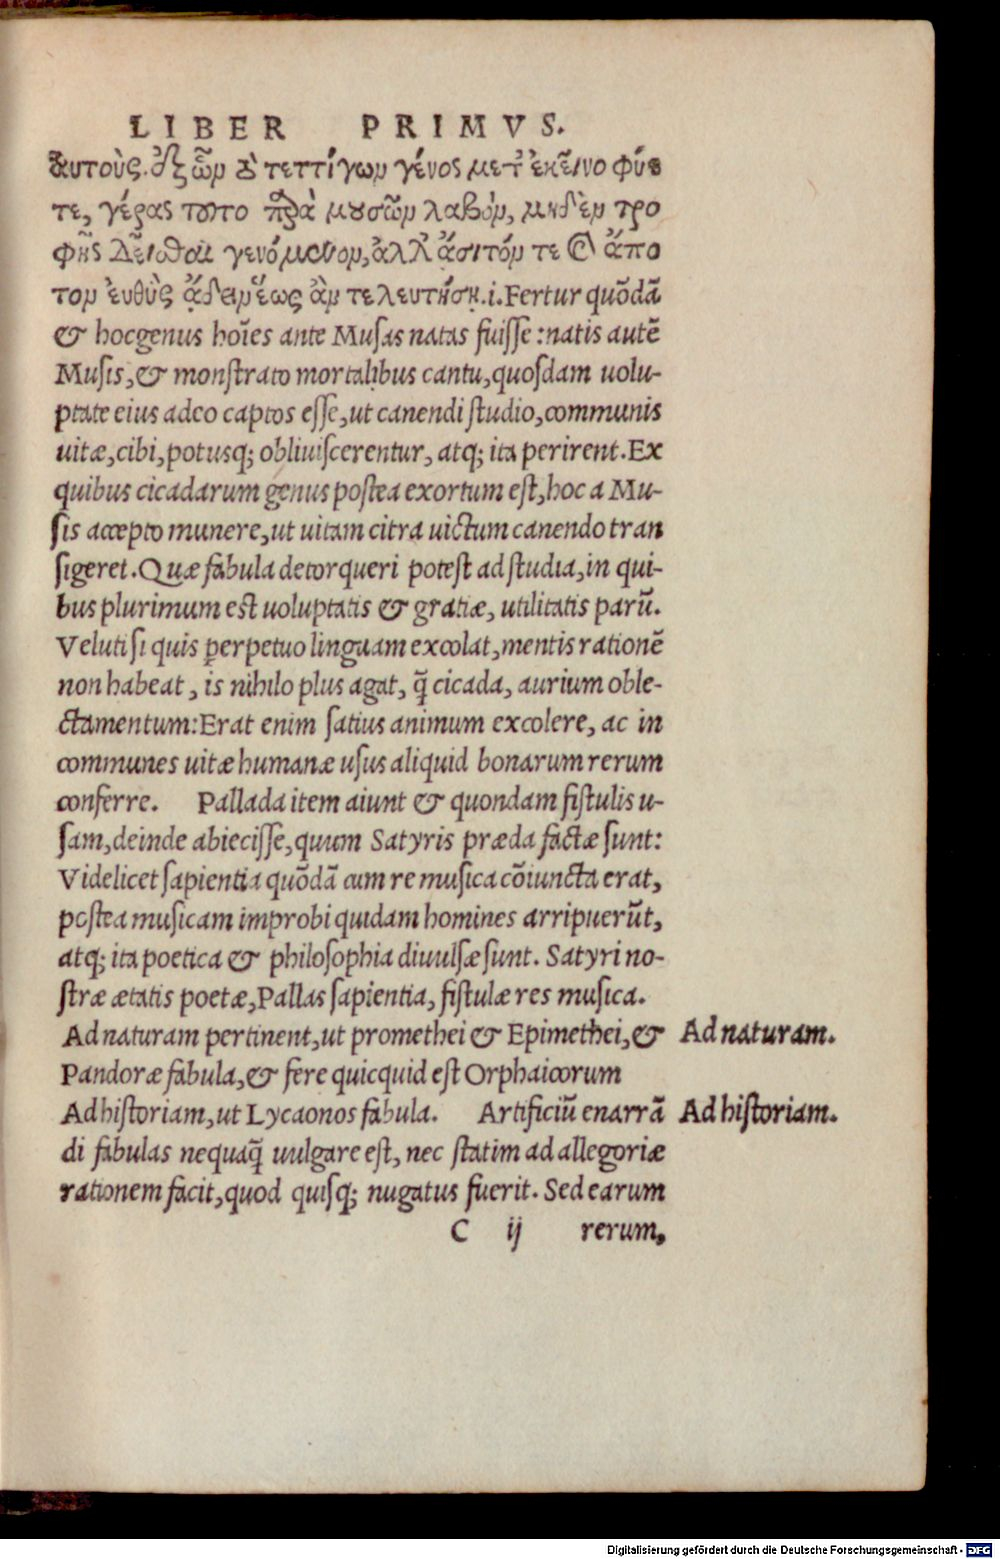 LIBER PRIMVS.
ἁυτοὺς. ἐξ ὧν δ̀ τεττίγων γένος μετ᾽ ἐκεῖνο φύε
τε, γέρας τοῦτο παρὰ μουσῶν λαβὸν, μηδὲν τρο
φῆς δεῖσθαι γενόμενον, ἀλλ᾽ ἄσιτόν τε καὶ ἄπο
τον ἐυθὺς ᾄδειν ἕως ἂν τελευτήσῃ. i. Fertur quōdā
& hocgenus hoīes ante Musas natas fuisse: natis autē
Musis, & monstrato mortalibus cantu, quosdam uolu-
ptate eius adeo captos esse, ut canendi studio, communis
uitæ, cibi, potusq; obliuiscerentur, atq; ita perirent. Ex
quibus cicadarum genus postea exortum est, hoc a Mu-
sis accepto munere, ut uitam citra uictum canendo tran
sigeret. Quæ fabula detorqueri potest ad studia, in qui-
bus plurimum est uoluptatis & gratiæ, utilitatis parū.
Veluti si quis ꝑerpetuo linguam excolat, mentis rationē
non habeat, is nihilo plus agat, q̄ cicada, aurium oble-
ctamentum: Erat enim satius animum excolere, ac in
communes uitæ humanæ usus aliquid bonarum rerum
conferre. Pallada item aiunt & quondam fistulis u-
sam, deinde abiecisse, quum Satyris præda factæ sunt:
Videlicet sapientia quōdā cum re musica cōiuncta erat,
postea musicam improbi quidam homines arripuerūt,
atq; ita poetica & philosophia diuulsæ sunt. Satyri no-
stræ ætatis poetæ, Pallas sapientia, fistulæ res musica.
Ad naturam pertinent, ut promethei & Epimethei, & Ad naturam.
Pandoræ fabula, & fere quicquid est Orphaicorum
Ad historiam, ut Lycaonos fabula. Artificiū enarrā Ad historiam.
di fabulas nequaq̄ uulgare est, nec statim ad allegoriæ
rationem facit, quod quisq; nugatus fuerit. Sed earum
C ij rerum,
Digitalisierung gefördert durch die Deutsche Forschungsgemeinschaft - DFG